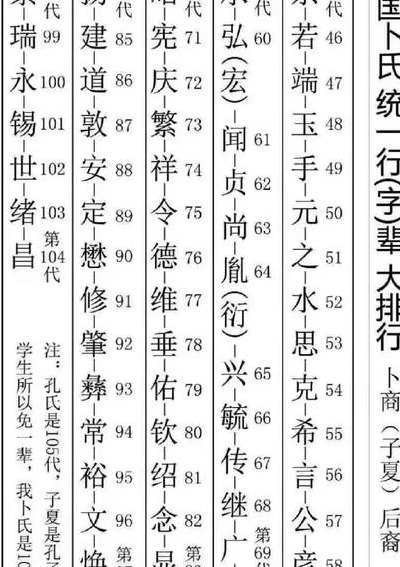 国卜氏统一行(字)辈大排行
卜商(子夏)后裔
代
若46—端47—玉48—手49—元50—之51—水52—思53—克54—希55—言56—公57—彦
代
弘60(宏)—闻61—贞62—尚63—胤64(衍)—兴65—毓66—传67—继68—广第69代
代
宪71—庆72—繁73—祥74—令75—德76—维77—垂78—佑79—钦80—绍81—念82
代
建85—道86—敦87—安88—定89—懋90—修91—肇92—彝93—常94—裕95—文96—焕第
代
瑞99—永100—锡101—世102—绪103—昌第104代
注：孔氏是105代，子夏是孔子
学生所以免一辈，我卜氏是10